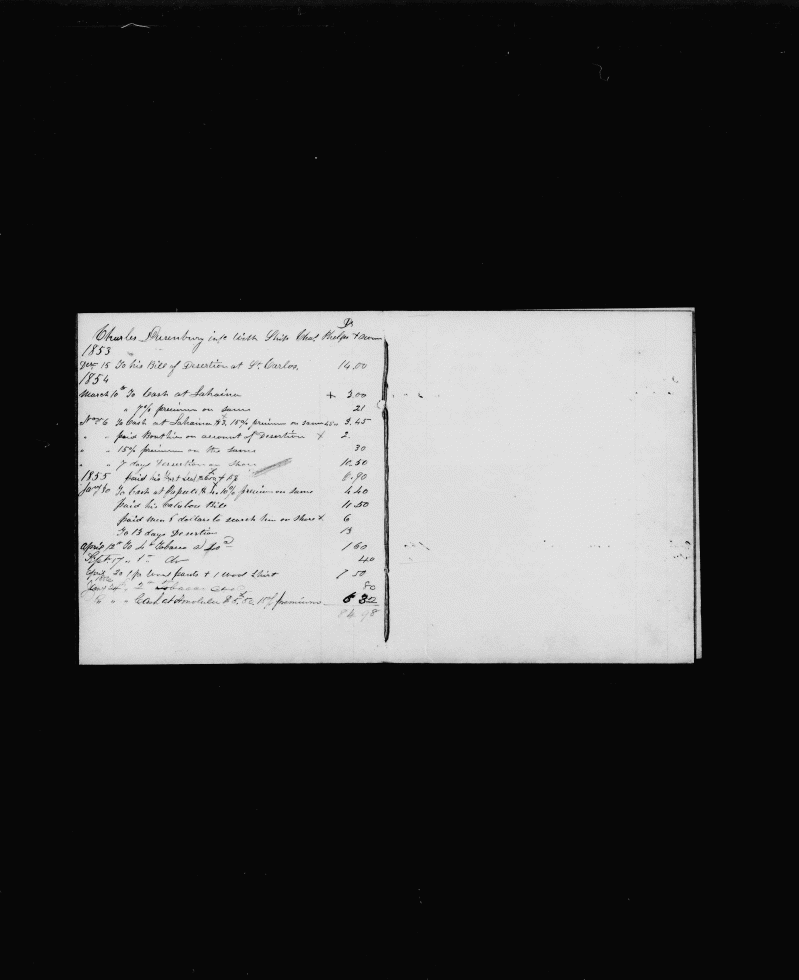 Dr
Charles in a/c With Ship Chas Phelps & Owners
1853
Dec 15 To his Bill of Desertion at St Carlos, 14.00
1854
March 10th To Cash at Lahaina + 3.00
" 7% premium on same 21
6 To Cash at Lahaina $3. 15% premium on same 3.45
" " paid on account of Desertion + 2.
" " 15% premium on the same 30
" " 7 days Desertion on Shore 10.50
1855 paid his 9.90
Jany 30 To Cash at $4. 10% premium on same 4.40
paid his Calaboos Bill 10.50
paid men 6 dollars to search him on Shore + 6
To 13 days Desertion 13
April 12th To 4 lb Tobacco 1 60
Sept. 17 " 1 lb do 40
20 1 pr Wool pants + 1 Wool Shirt 7 50
2 lb Tobacco 80
" " Cash at Honolulu 10% premiums 6 32